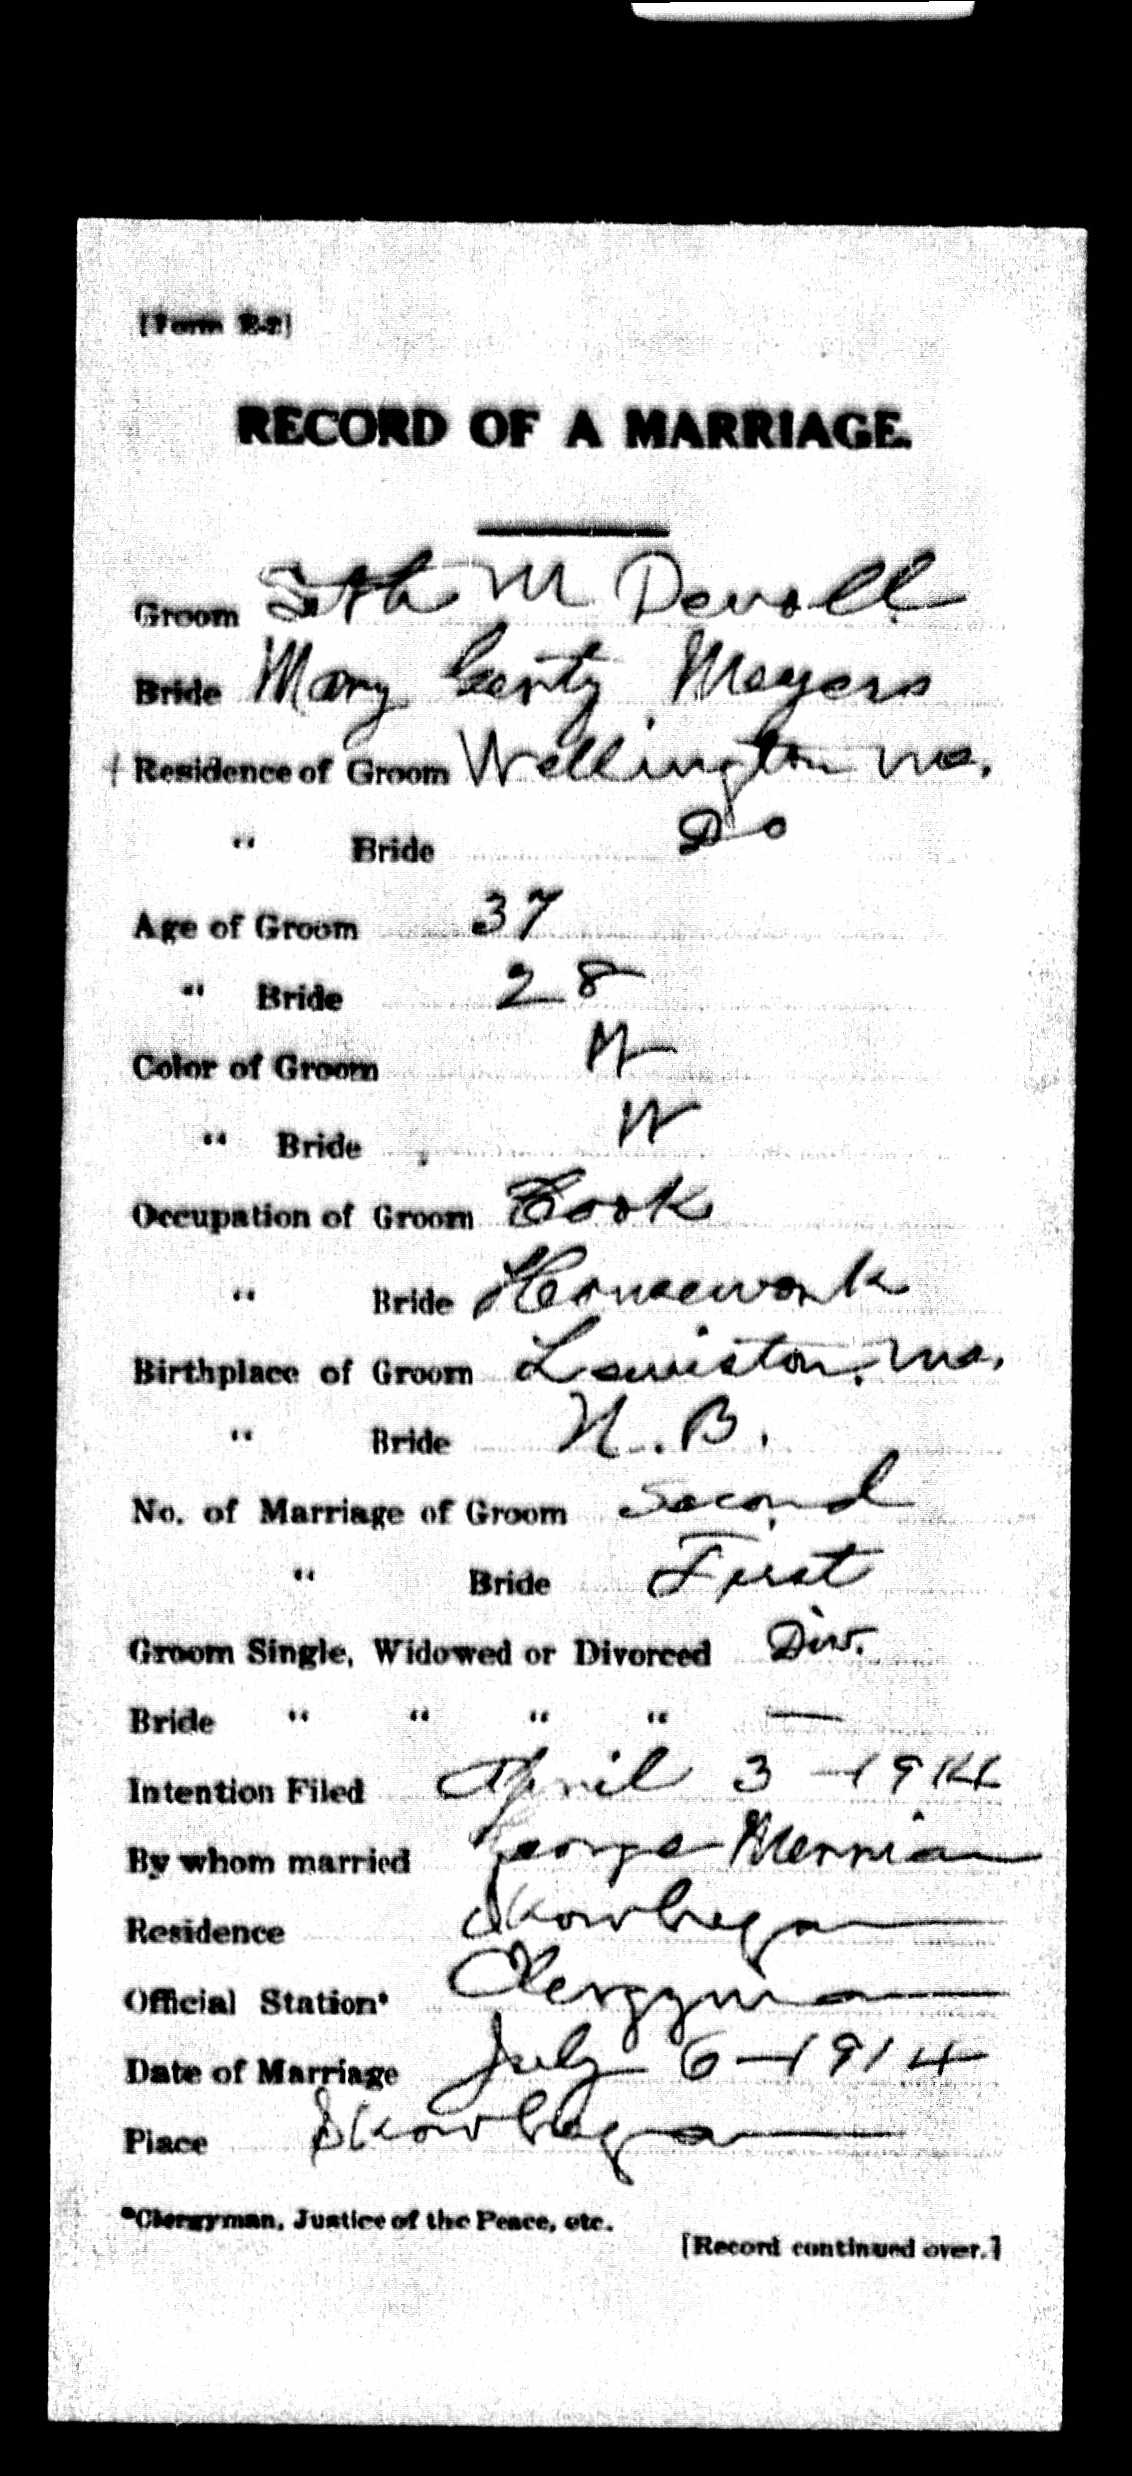 [Form R-2]
RECORD OF A MARRIAGE.
Groom Seth M Devoll
Bride Mary Meyers
Residence of Groom Wellington Me.
" Bride Do
Age of Groom 37
" Bride 28
Color of Groom W
" Bride W
Occupation of Groom Cook
" Bride Housework
Birthplace of Groom Lewiston, Me.
" Bride N.B.
No. of Marriage of Groom Second
" Bride First
Groom Single, Widowed or Divorced Div.
Bride " " " " —
Intention Filed April 3 - 1914
By whom married George Merriam
Residence Skowhegan
Official Station* Clergyman
Date of Marriage July 6 - 1914
Place Skowhegan
*Clergyman, Justice of the Peace, etc.
[Record continued over.]